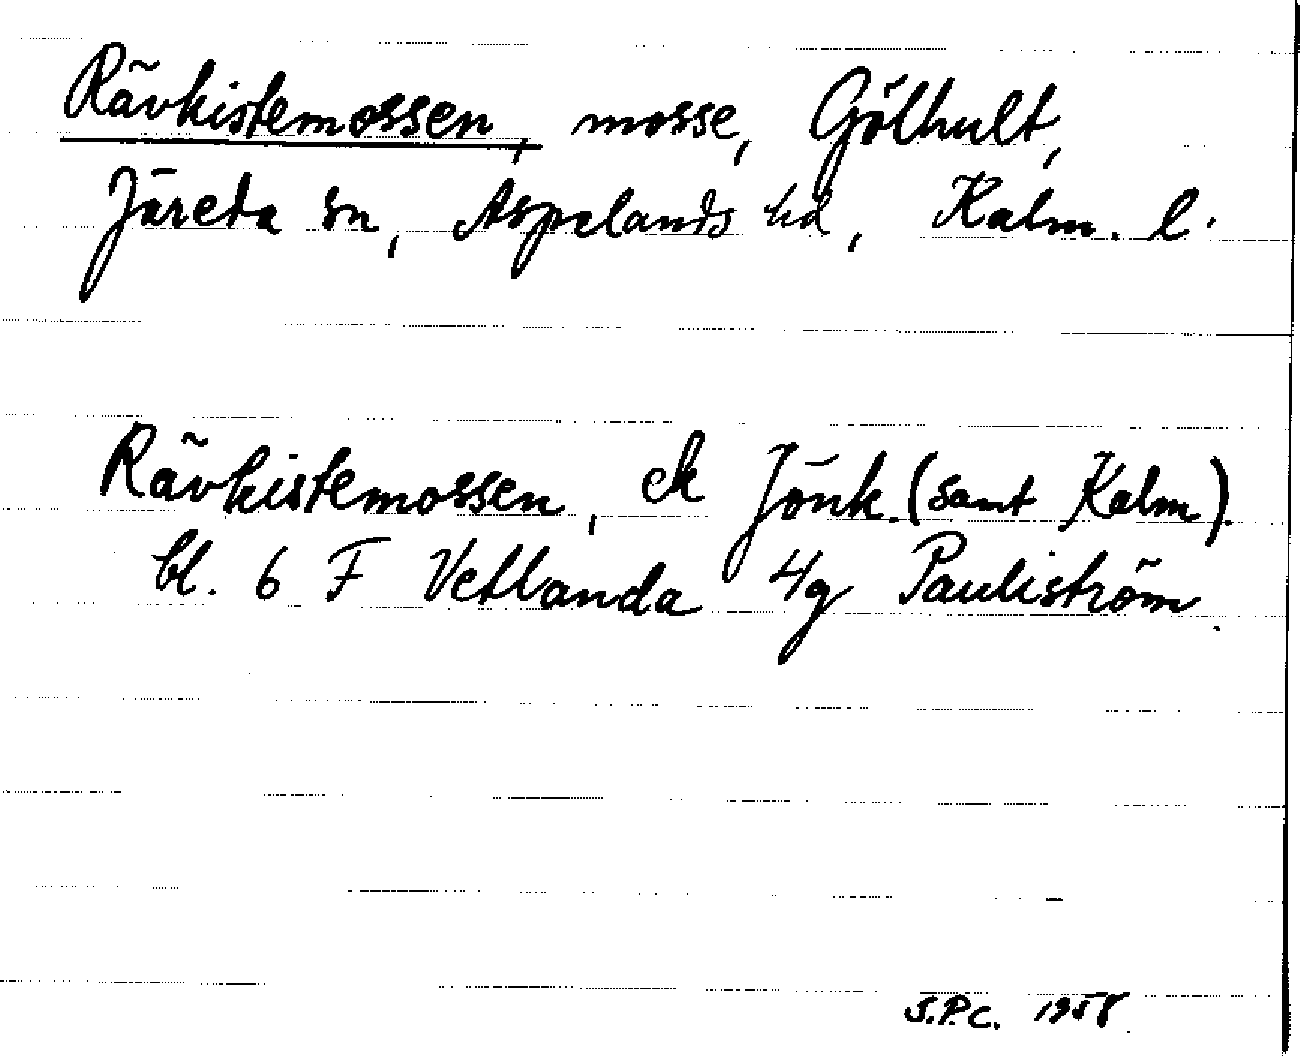 Rävkistemossen, mosse, Gölhult,
Järeda sn, Aspelands hd, Kalm. l.
Rävkistemossen, ek Jönk. (samt Kalm).
bl. 6 F Vetlanda 4g Pauliström.
S.P.C. 1958